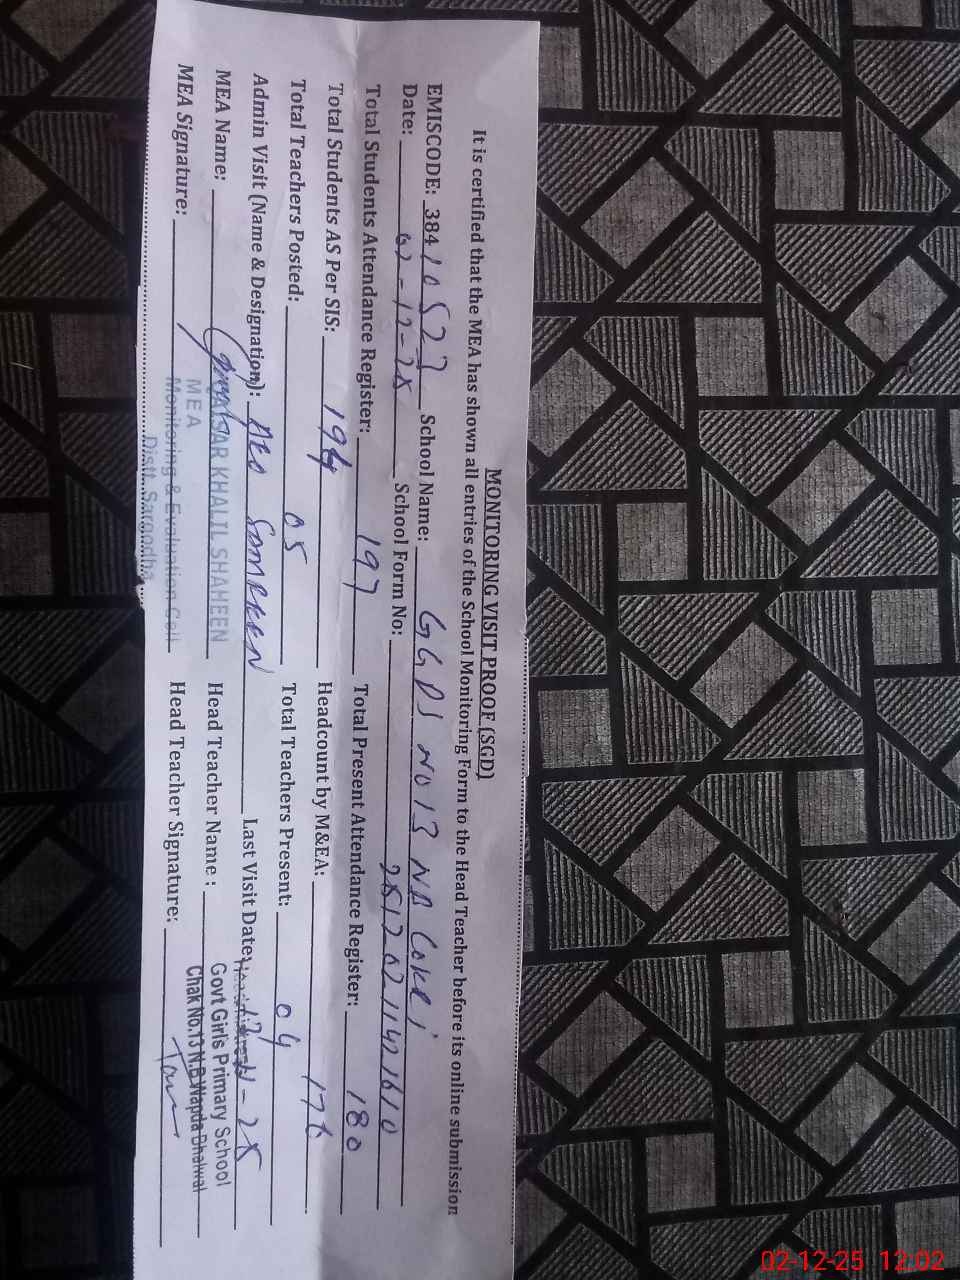 MONITORING VISIT PROOF (SGD)
It is certified that the MEA has shown all entries of the School Monitoring Form to the Head Teacher before its online submission
EMISCODE: 38410522 School Name: GGPS NO 13 NB
Date: 02-12-25 School Form No:
Total Students Attendance Register: 197 Total Present Attendance Register: 180
Total Students AS Per SIS: 194 Headcount by M&EA: 176
Total Teachers Posted: 05 Total Teachers Present: 04
Admin Visit (Name & Designation): AEO Last Visit Date:
MEA Name: QAISAR KHALIL SHAHEEN Head Teacher Name :
MEA
Govt Girl's Primary School
Chak No.13 N.B Wapda Dhalwal
MEA Signature: Head Teacher Signature:
Monitoring & Evaluation Cell
Distt. Sargodha
02-12-25 12:02